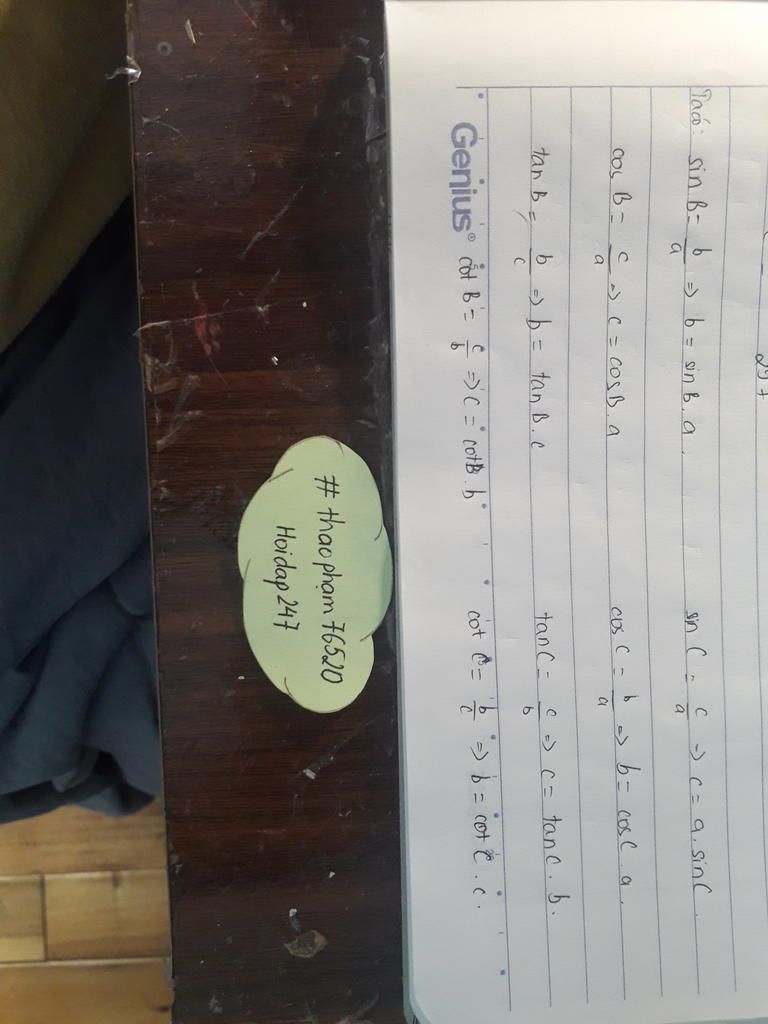 247
Ta có: sin B = b/a => b = sin B . a . sin C = c/a => c = a . sin C .
cos B = c/a => c = cos B . a cos C = b/a => b = cos C . a .
tan B = b/c => b = tan B . c tan C = c/b => c = tan C . b .
Genius® cot B = c/b => c = cot B . b cot C = b/c => b = cot C . c .
# thaophạm 76520
Hoidap 247